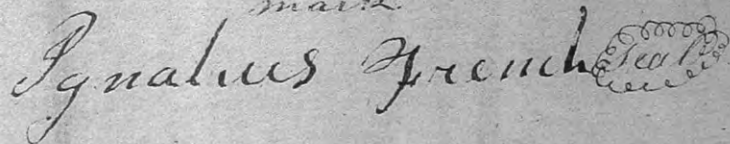 mark
Ignatius French Seal